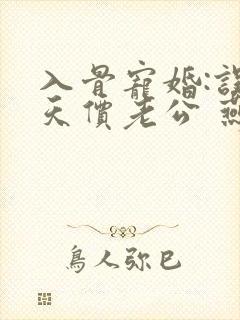 入骨寵婚:誤
天價老公 燕
鳥人弥巳